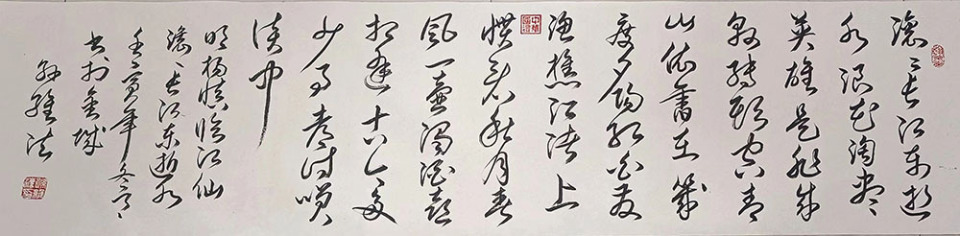 滚滚长江东逝
水浪花淘尽
英雄是非成
败转头空青
山依旧在几
度夕阳红白发
渔樵江渚上
惯看秋月春
风一壶浊酒喜
相逢古今多
少事都付笑
谈中
明杨慎临江仙
滚滚长江东逝水
壬寅年冬月
书于金城